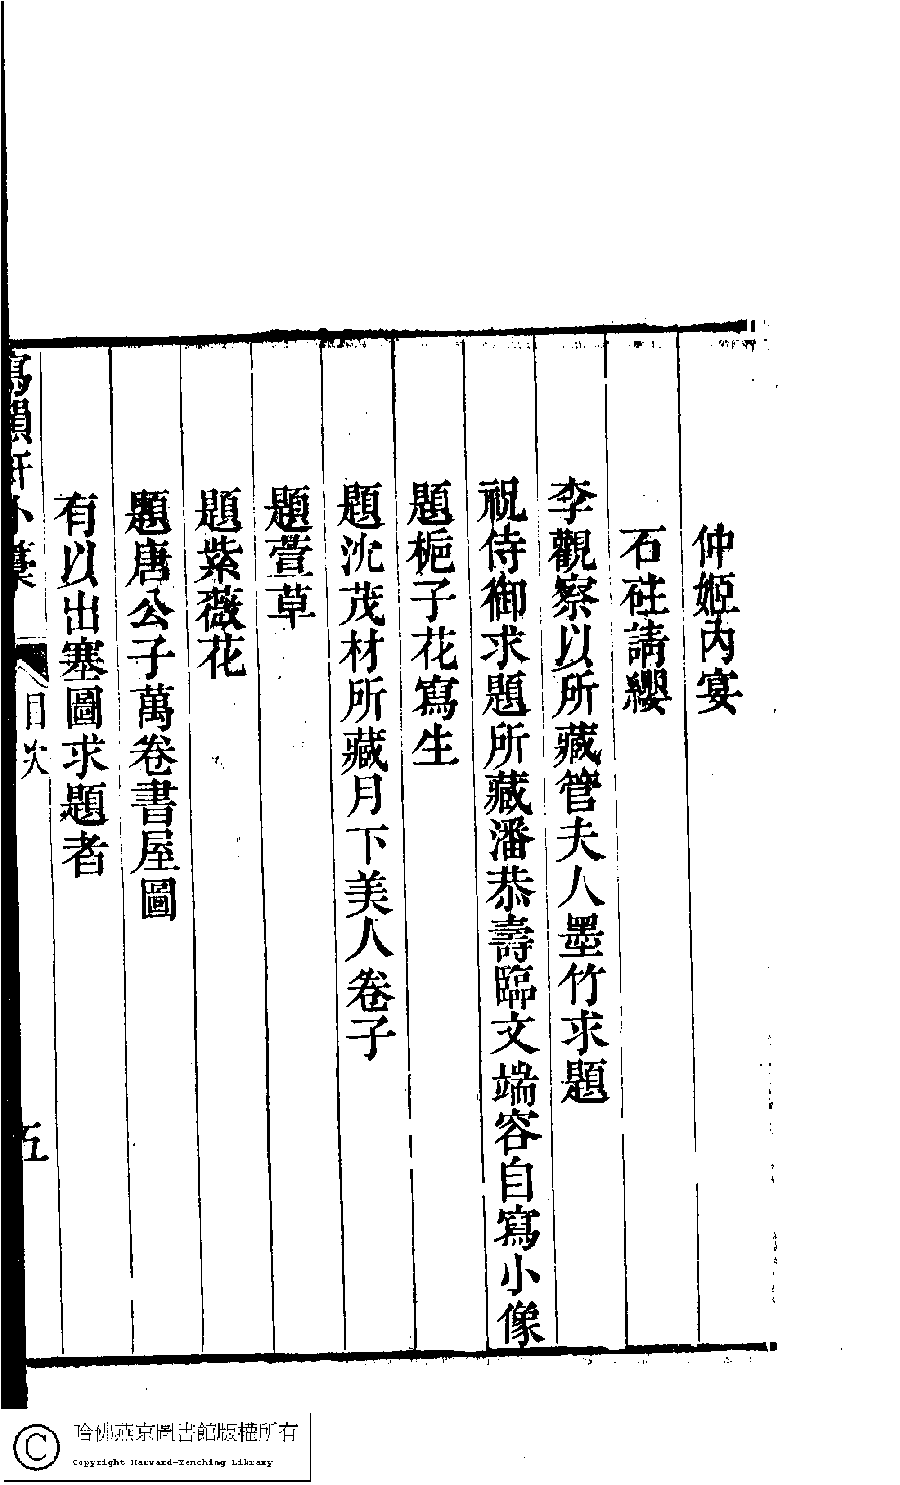 仲姬內宴
石砫請纓
李觀察以所藏管夫人墨竹求題
祝侍御求題所藏潘恭壽臨文端容自寫小像
題梔子花寫生
題沈茂材所藏月下美人卷子
題萱草
題紫薇花
題唐公子萬卷書屋圖
有以出塞圖求題者
寫韻軒小藁 目次 五
哈佛燕京圖書館版權所有
Copyright Harvard-Yenching Library